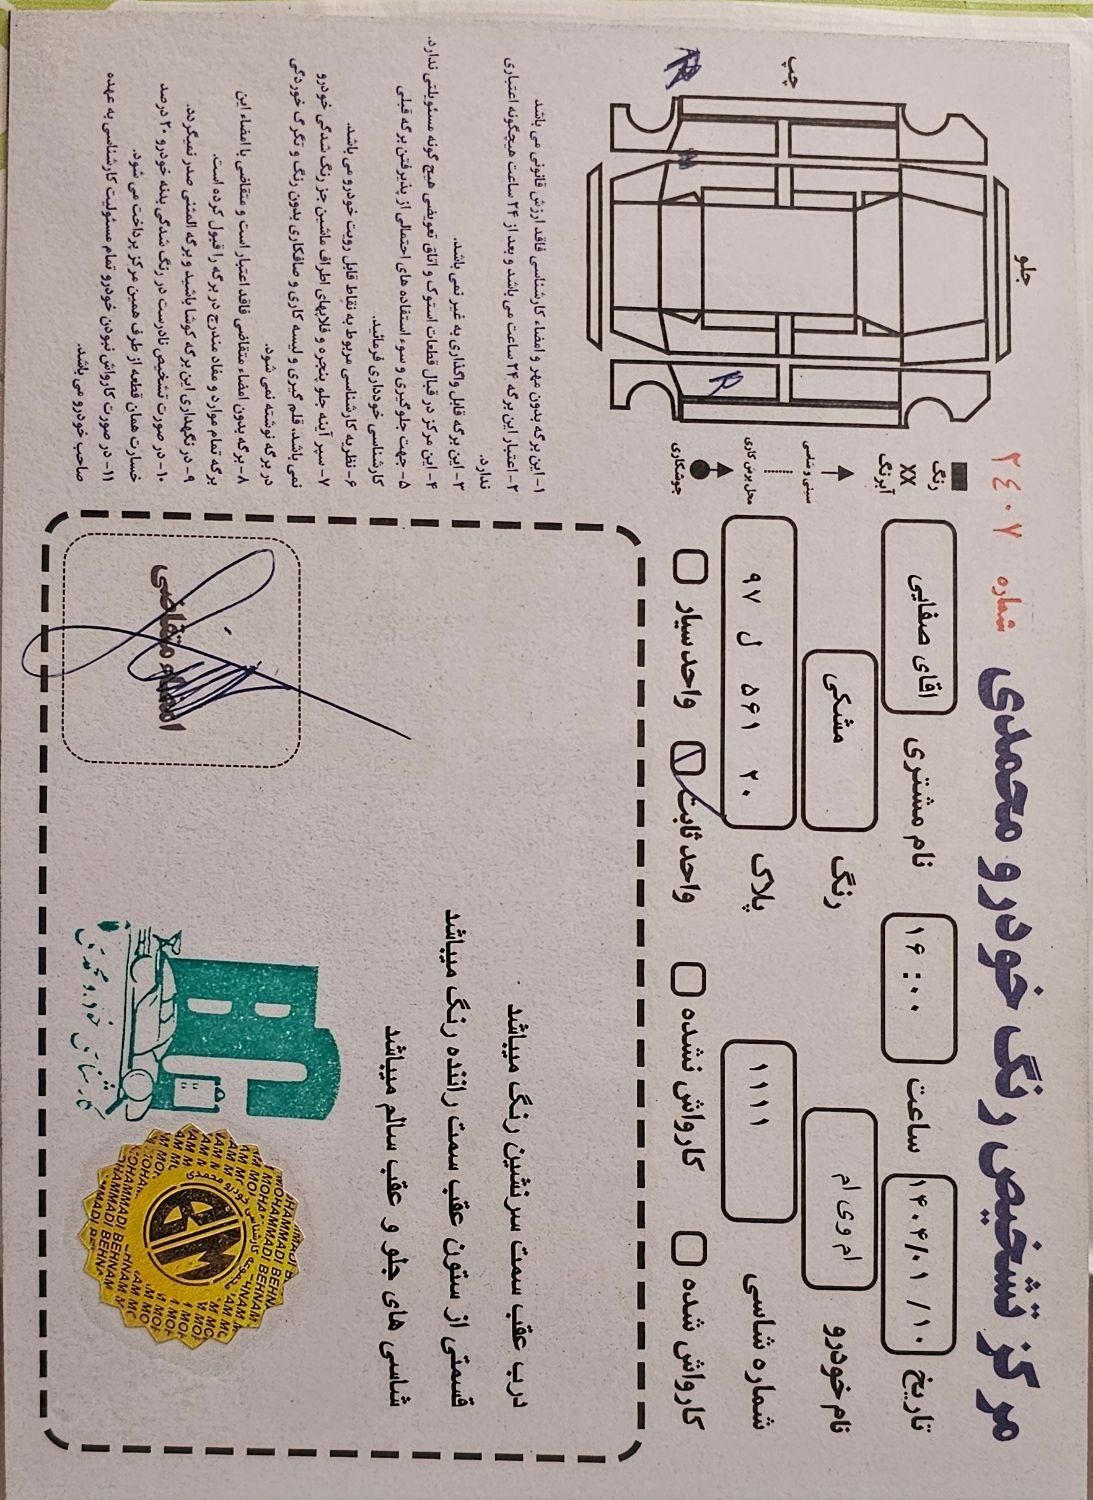 مرکز تشخیص رنگ خودرو محمدی
شماره ۲۴۰۷
تاریخ ۱۴۰۴/۰۱/۱۰
ساعت ۱۶:۰۰
نام مشتری اقای صفایی
نام خودرو ام وی ام
رنگ مشکی
شماره شاسی ۱۱۱۱
پلاک ۲۰ ۵۶۱ ل ۹۷
کارواش شده
کارواش نشده
واحد ثابت
واحد سیار
رنگ
XX
آبرنگ
محل برش کاری
جوشکاری
جلو
چپ
درب عقب سمت سرنشین رنگ میباشد
قسمتی از ستون عقب سمت راننده رنگ میباشد
شاسی های جلو و عقب سالم میباشد
۱- این برگه بدون مهر و امضاء کارشناسی فاقد ارزش قانونی می باشد
۲- اعتبار این برگه ۲۴ ساعت می باشد و بعد از ۲۴ ساعت هیچگونه اعتباری
ندارد.
۳- این برگه قابل واگذاری به غیر نمی باشد.
۴- این مرکز در قبال قطعات استوک و اتاق تعویضی هیچ گونه مسئولیتی ندارد.
۵- جهت جلوگیری و سوء استفاده های احتمالی از پذیرفتن برگه قبلی
کارشناسی خودداری فرمائید.
۶- نظریه کارشناسی مربوط به نقاط قابل رویت خودرو می باشد.
۷- سپر آینه جلو پنجره و قلابهای اطراف ماشین جز رنگ شدگی خودرو
نمی باشد، قلم گیری و لیسه کاری و صافکاری بدون رنگ و تگرگ خوردگی
در برگه نوشته نمی شود.
۸- برگه بدون امضاء متقاضی فاقد اعتبار است و متقاضی با امضاء این
برگه تمام موارد و مفاد مندرج در برگه را قبول کرده است.
۹- در نگهداری این برگه کوشا باشید و برگه المثنی صدر نمیگردد.
۱۰- در صورت تشخیص نادرست در رنگ شدگی بدنه خودرو ۲۰ درصد
خسارت همان قطعه از طرف همین مرکز پرداخت می شود.
۱۱- در صورت کارواش نبودن خودرو تمام مسئولیت کارشناسی به عهده
صاحب خودرو می باشد.
امضاء متقاضی
کارشناسی خودرو محمدی
مجموعه کارشناسی خودرو محمدی
MOHAMMADI BEHNAM